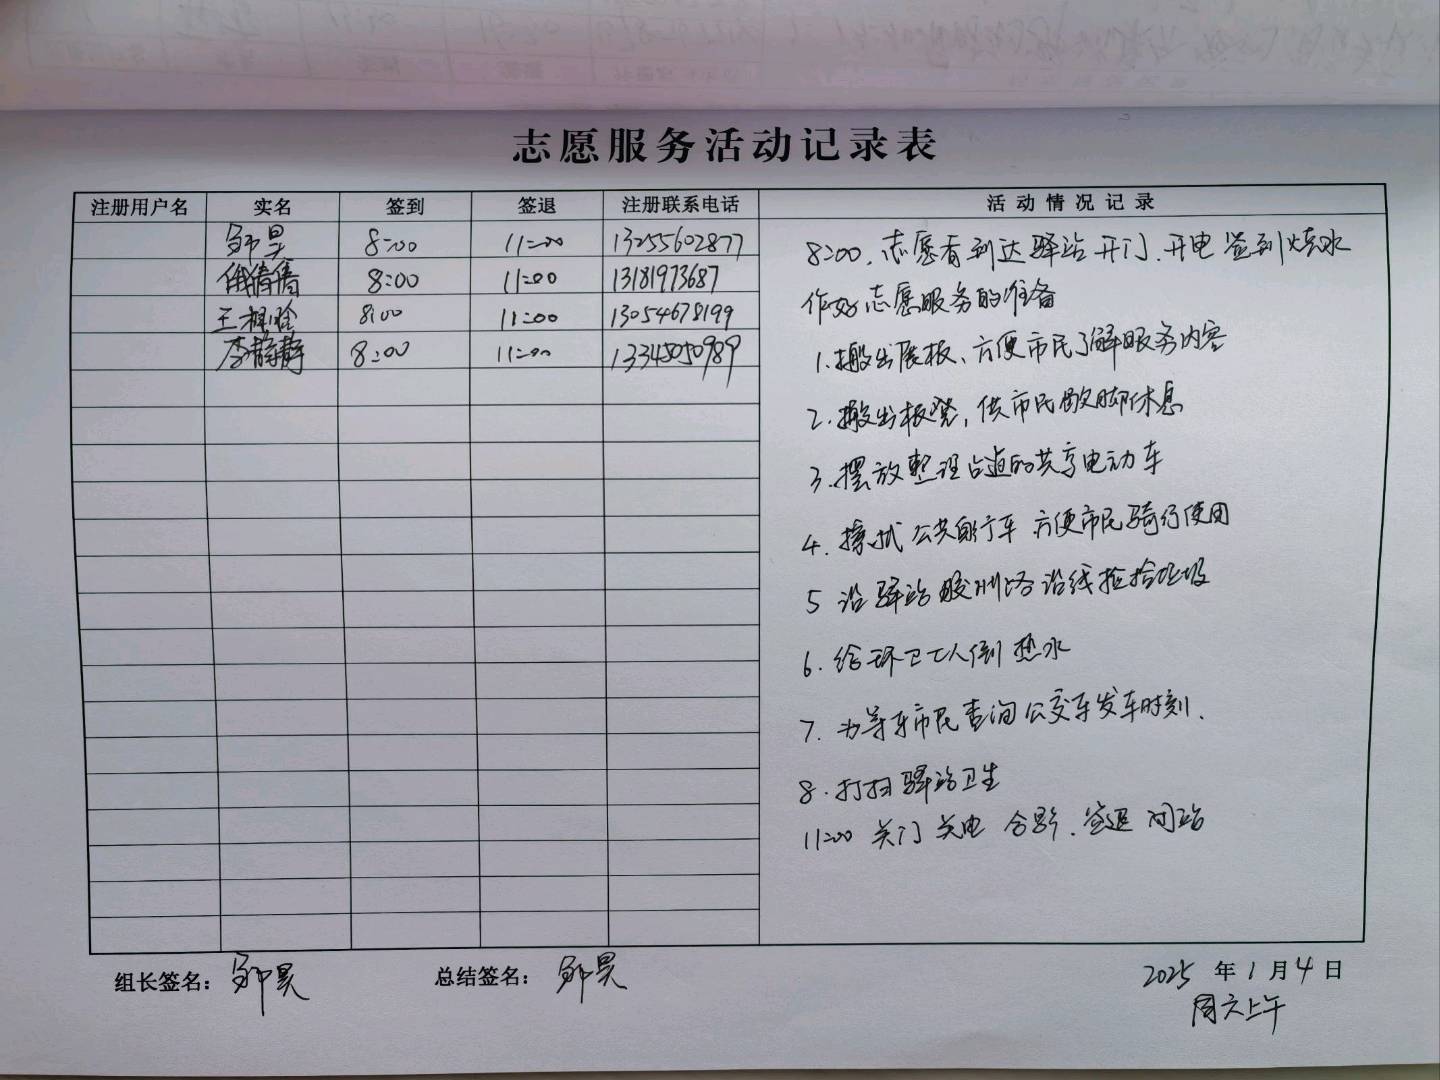 志愿服务活动记录表
注册用户名 实名 签到 签退 注册联系电话 活动情况记录
邹昊 8:00 11:00 13255602877
倩倩 8:00 11:00 13181973687
王 8:00 11:00 13054678199
李静静 8:00 11:00 13345050989
8:00,志愿者到达驿站开门、开电 签到 烧水
作好志愿服务的准备
1.搬出展板、方便市民了解服务内容
2.搬出板凳,供市民歇脚休息
3.摆放整理占道的共享电动车
4.擦拭公共自行车 方便市民骑行使用
5 沿驿站胶州路沿线捡拾垃圾
6.给环卫工人倒热水
7.为等车市民查询公交车发车时刻.
8.打扫驿站卫生
11:00 关门 关电 合影、签退 闭站
组长签名:邹昊 总结签名:邹昊 2025年1月4日
周六上午